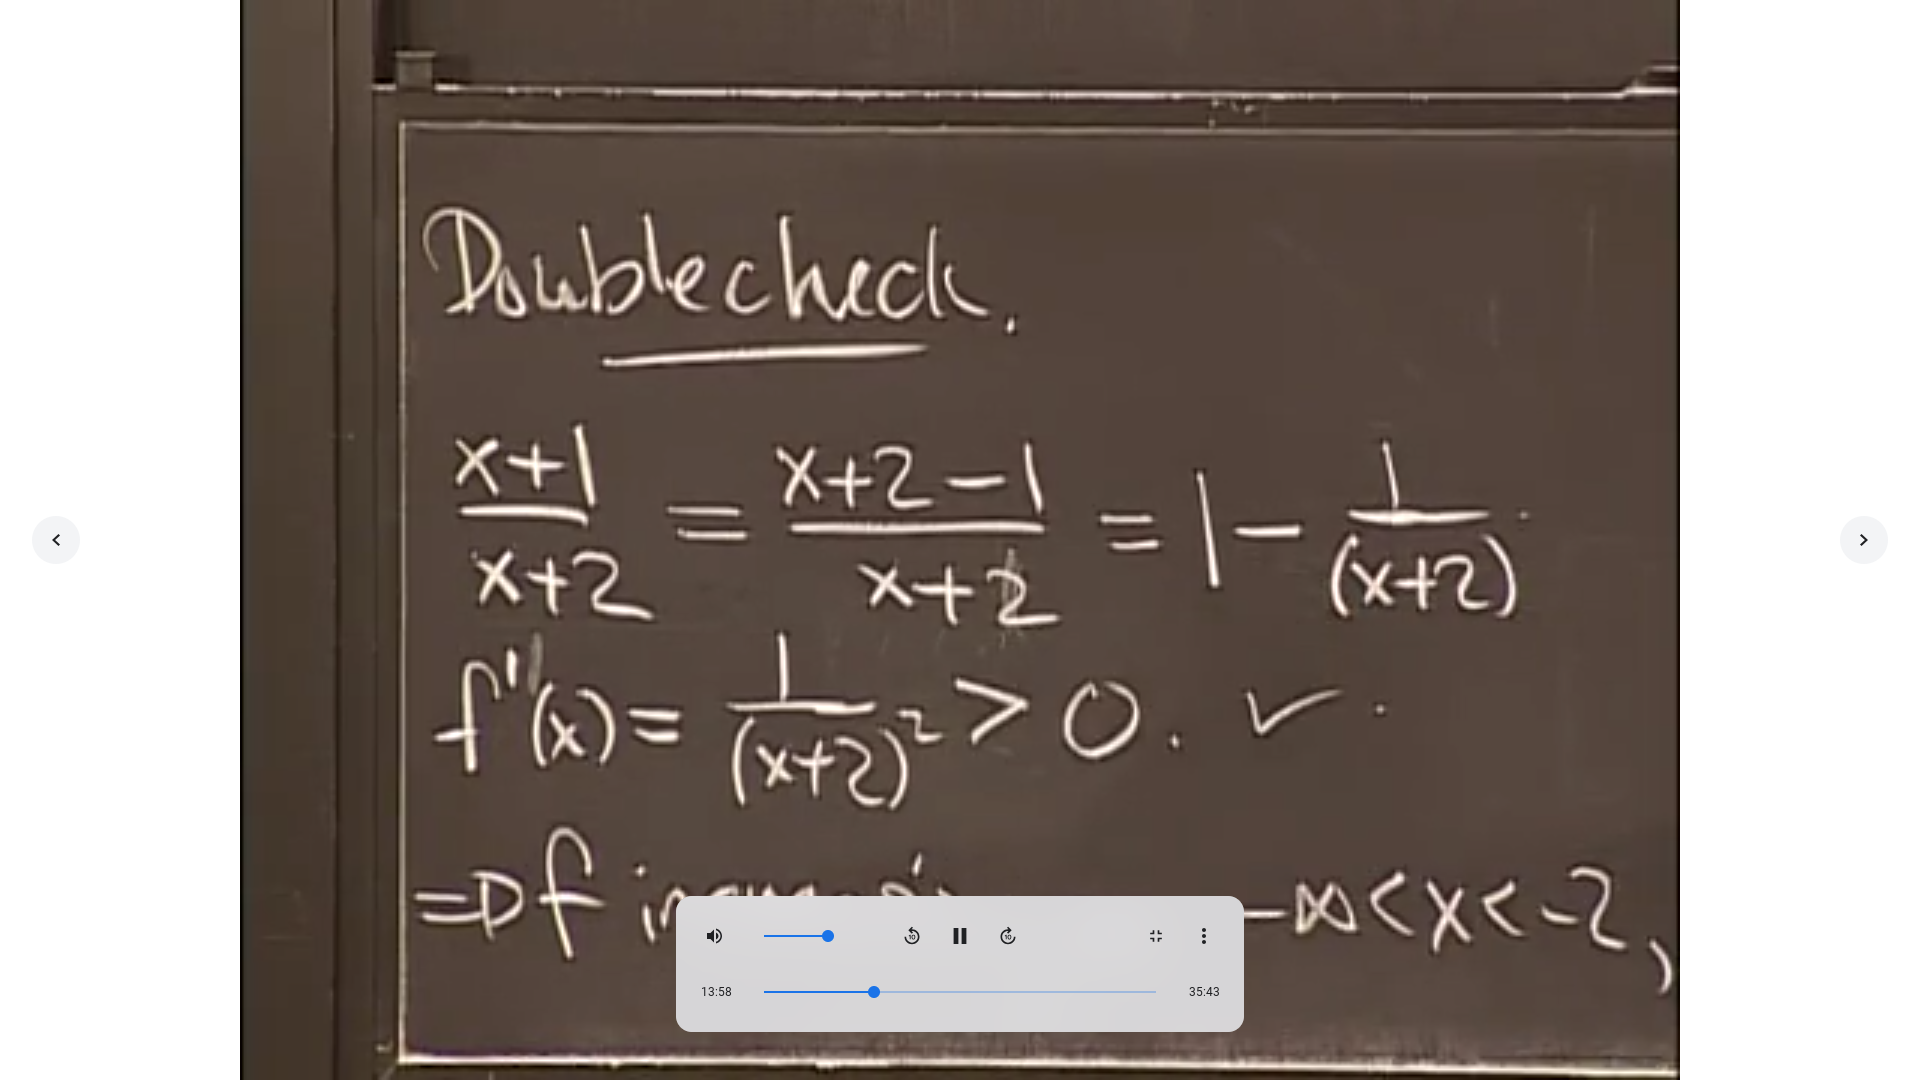 Doublecheck.
x+1/x+2 = x+2-1/x+2 = 1 - 1/(x+2).
f'(x) = 1/(x+2)² > 0. ✓.
=> f -∞<x<-2,
10 10
13:58 35:43